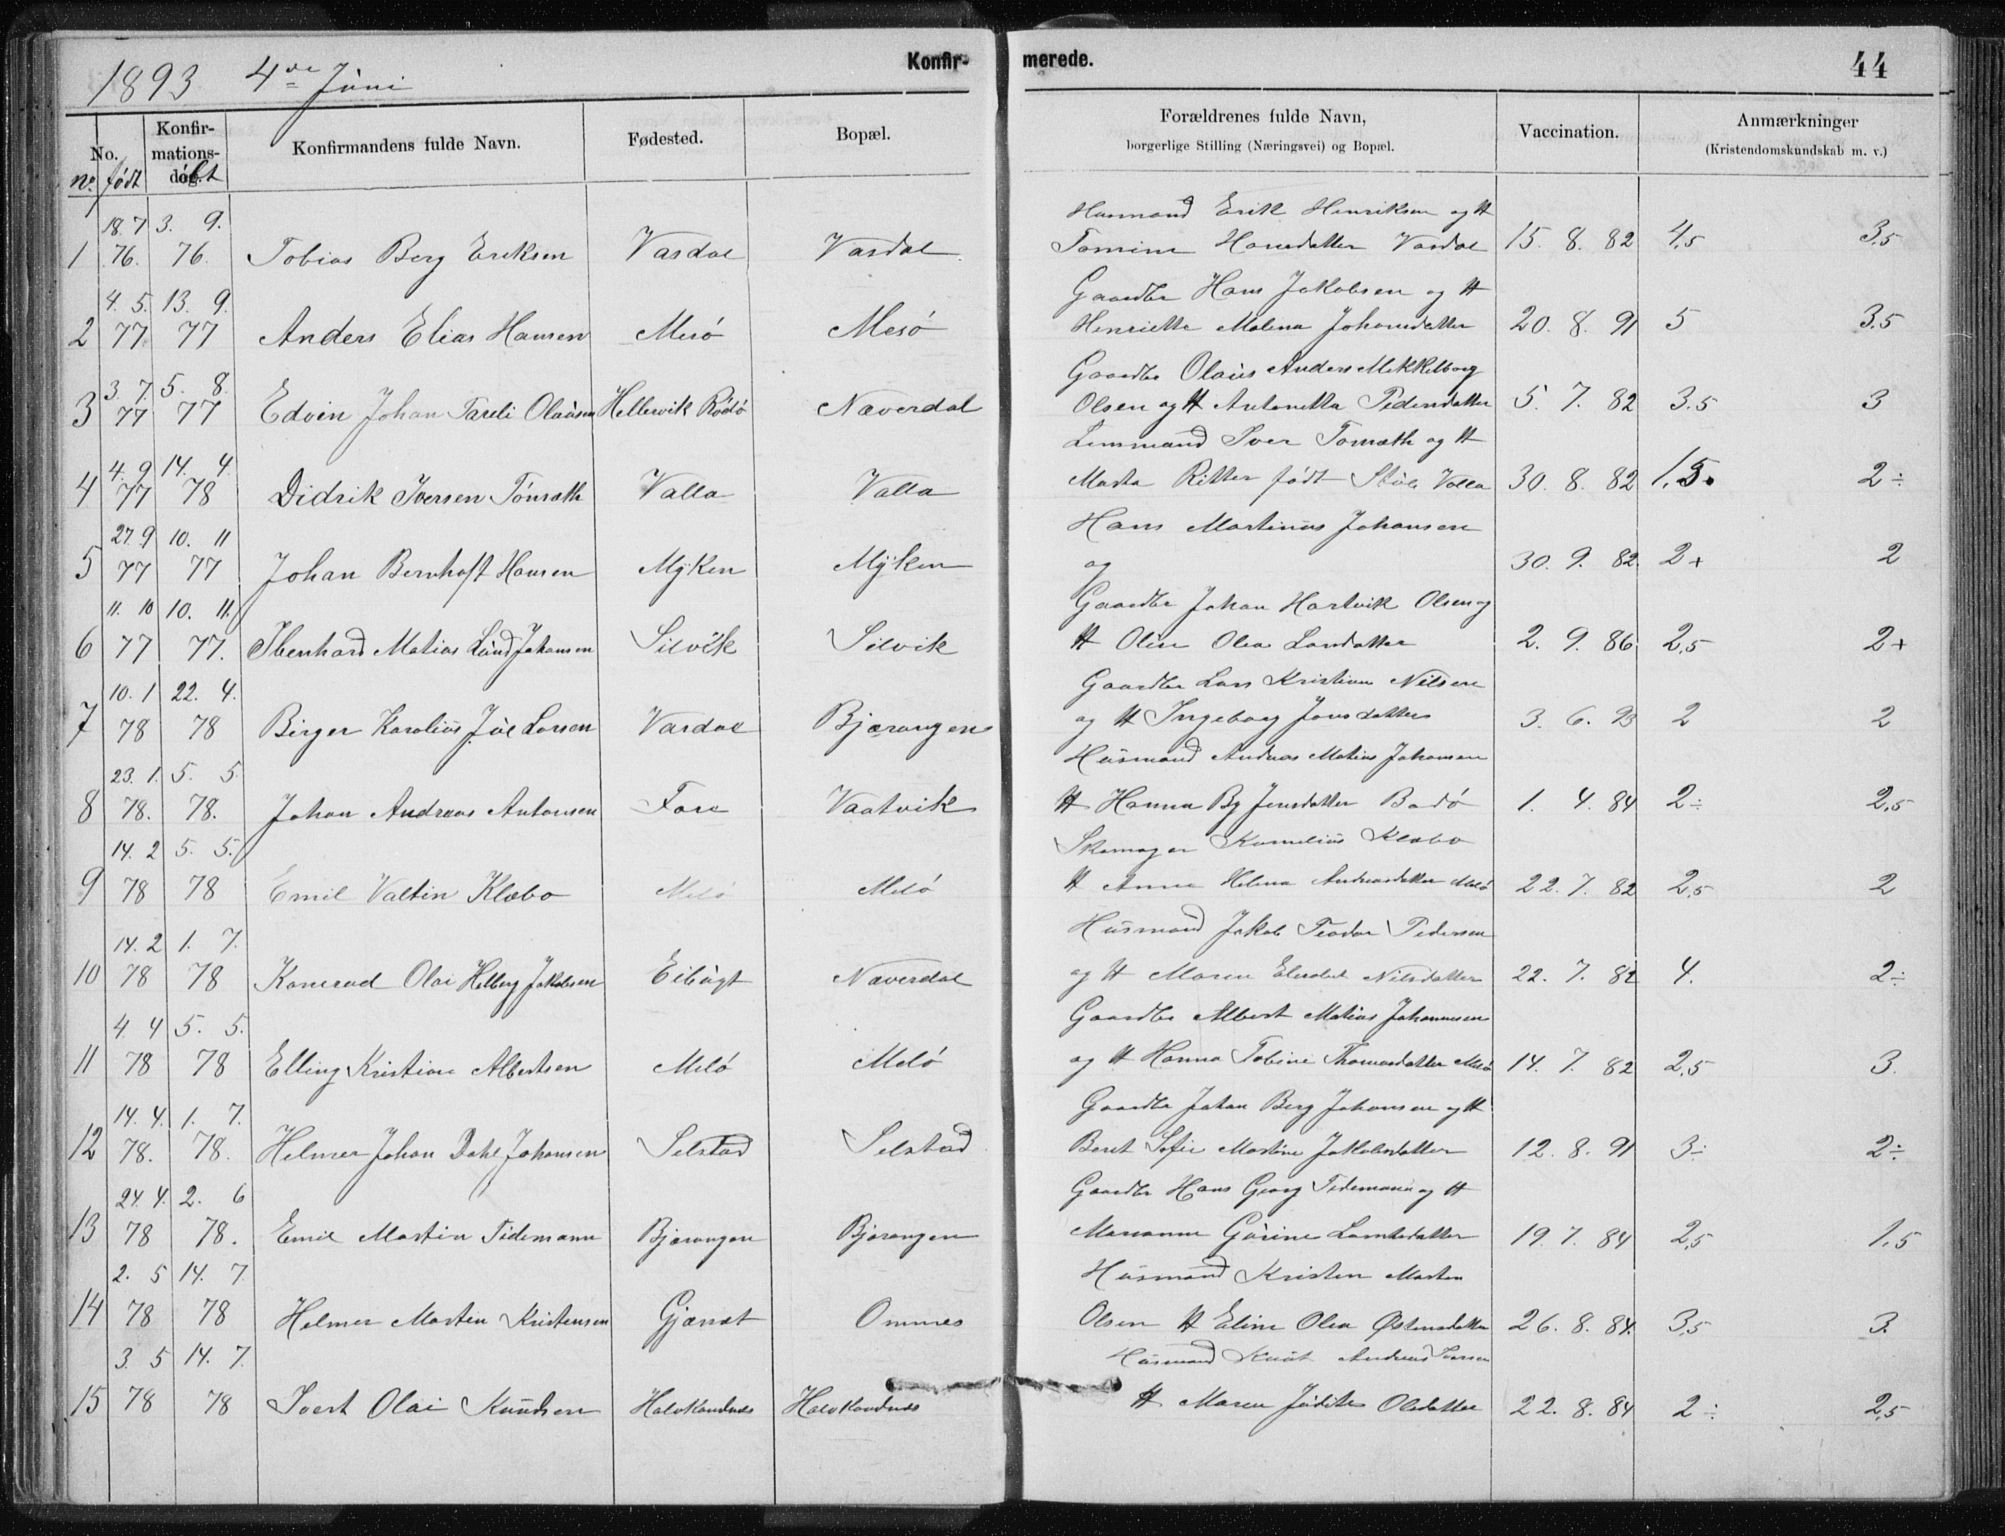 1893 4de Juni
Konfir- merede.
44
No. Konfir- mations- dag. Konfirmandens fulde Navn. Fødested. Bopæl. Forældrenes fulde Navn, borgerlige Stilling (Næringsvei) og Bopæl. Vaccination. Anmærkninger (Kristendomskundskab m. v.)
no. født døbt
18. 7 3. 9. Husmand Erik Henriksen og H
1 76. 76. Tobias Berg Eriksen Vasdal Vasdal Hansdatter Vasdal 15. 8. 82 4,5 3,5
4. 5. 13. 9. Gaardbr Hans Jakobsen og H
2 77 77 Anders Elias Hansen Mesö Mesö Henriette Malena Johansdatter 20. 8. 91 5 3.5
3. 7. 5. 8. Gaardbr Olaüs Anders Mekkelborg
3 77 77 Edvin Johan Olaüsen Hellervik Rödö Næverdal Olsen og H Antonetta Pedersdatter 5. 7. 82 3.5 3
4. 9 14. 4. Iver og H
4 77 78 Didrik Iversen Valla Valla Marta Ritter født Valla 30. 8. 82 1.5. 2÷
27. 9 10. 11 Hans Martinus Johansen
5 77 77 Johan Bernhoft Hansen Myken Myken og 30. 9. 82 2+ 2
11. 10 10. 11. Gaardbr Johan Hartvik Olsen og
6 77 77. Ibenhard Matias Lünd Johansen Silvik Silvik H Oline Olea Larsdatter 2. 9. 86 2,5 2+
10. 1 22. 4. Gaardbr Lars Kristian Nilsen
7 78 78 Birger Karolius Jüel Larsen Vasdal Bjærangen og H Ingeborg Jonsdatter 3. 6. 93 2 2
23. 1. 5. 5. Hüsmand Andreas Matias Johansen
8 78. 78. Johan Andreas Antonsen Fore Vaatvik H Hanna By Jensdatter Bodö 1. 4. 84 2÷ 2,5
14. 2 5. 5. Skomager Kornelius Klæbo
9 78 78 Emil Valtin Klæbo Melö Melö H Anna Helena Andreasdatter Melö 22. 7. 82 2,5 2
14. 2 1. 7. Hüsmand Jakob Teodor Pedersen
10 78 78 Konrad Olai Helberg Jakobsen Næverdal og H Maren Nilsdatter 22. 7. 82 4. 2÷
4 4 5. 5. Gaardbr Albert Matias Johannesen
11 78 78 Elling Kristian Albertsen Melö Melö og H Hanna Tobine Thomasdatter Melö 14. 7. 82 2,5 3.
14. 4. 1. 7. Gaardbr Johan Berg Johansen og H
12 78. 78. Helmer Johan Dahl Johansen Selstad Selstad Beret Sofie Martine Jakobsdatter 12. 8. 91 3÷ 2÷
24. 4. 2. 6 Gaardbr Hans Georg Tidemann og H
13 78 78. Emil Martin Tidemann Bjærangen Bjærangen Marianne Lorntsdatter 19. 7. 84 2,5 1,5
2. 5 14. 7. Hüsmand Kristen Morten
14 78 78 Helmer Morten Kristensen Ommes Olsen H Eline Olea Østensdatter 26. 8. 84. 3,5 3.
3 5 14. 7. Hüsmand Knüt Andreas Iversen
15 78 78 Ivert Olai Knüdsen Halvkandnes Halvkandnes H Maren Jüdite Olsdatter 22. 8. 84 2÷ 2,5